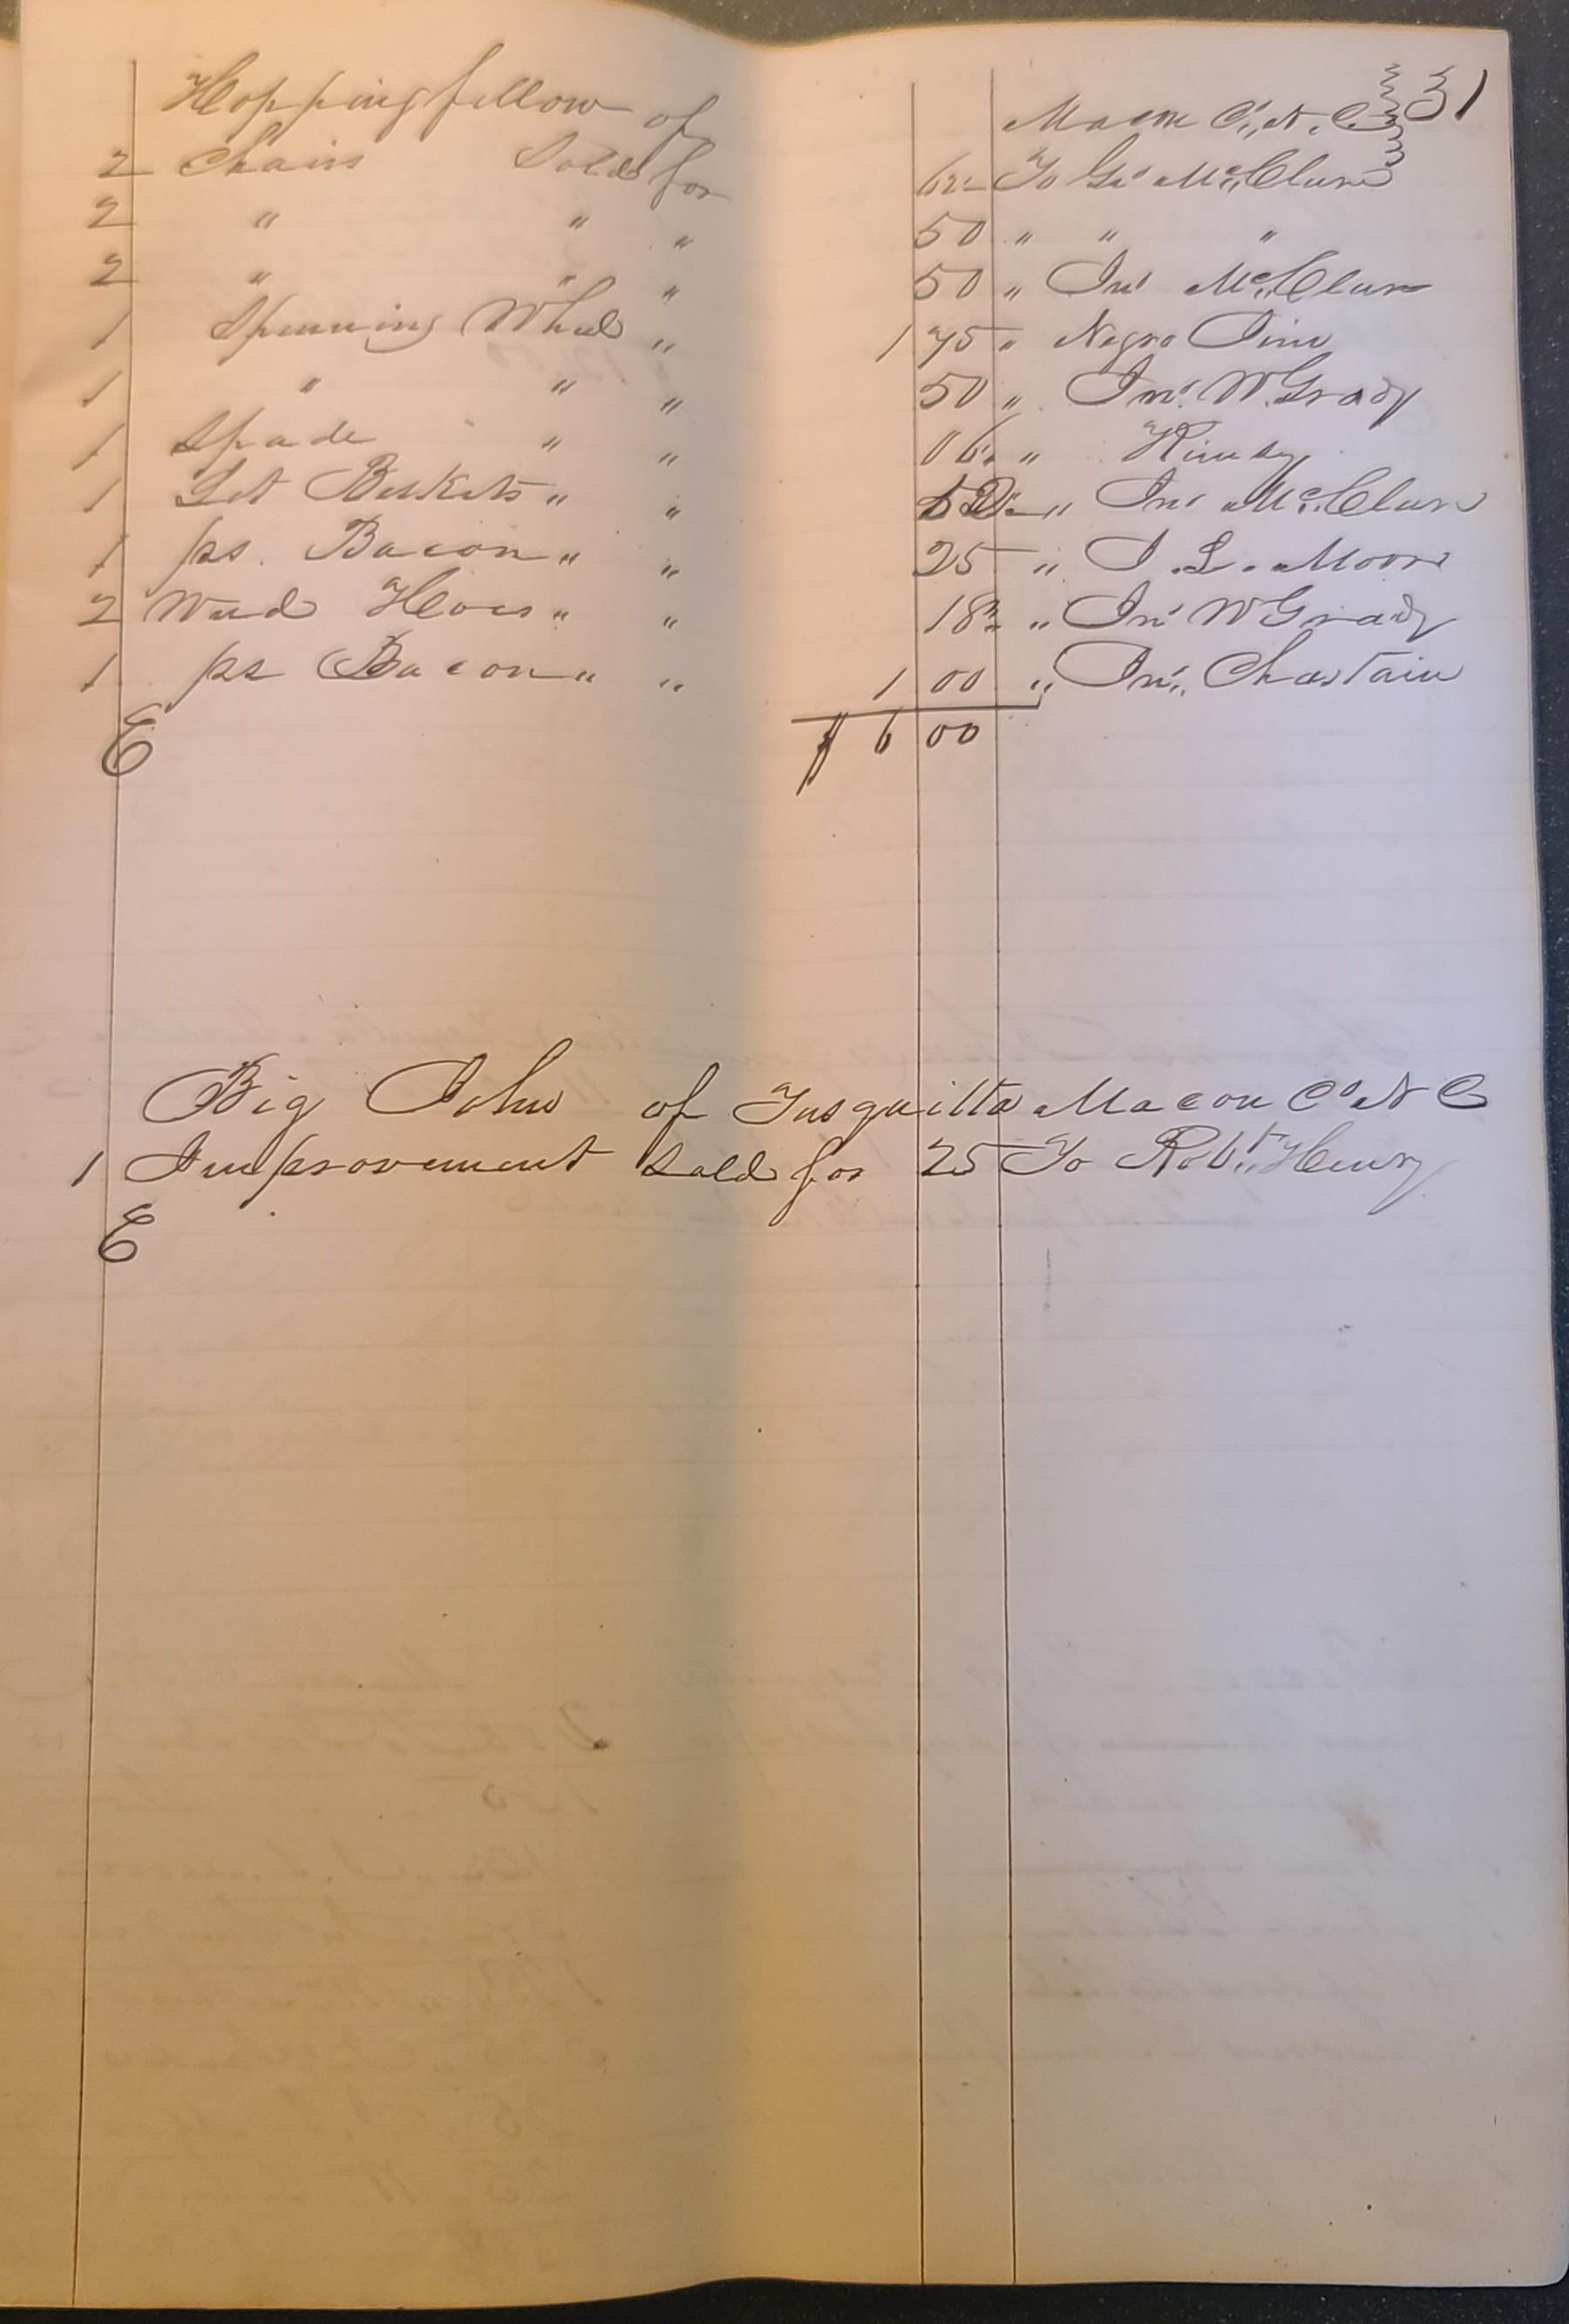 31
Hoppingfellow of Macon Co. N. C.
2 Chairs Sold for 62 To Go McClure
2 " " " 50 " " "
2 " " " 50 " Jno McClure
1 Spinning Wheel " 1 75 " Negro Jim
1 " " " 50 " Jno. W. Grady
1 Spade " " 06 "
1 Set Baskets " " " Jno McClure
1 ps. Bacon " " 25 " J. L. Moore
2 Weed Hoes " " 18 " Jno W Grady
1 ps Bacon " " 1 00 " Jno. Chastain
E $ 6 00
Big John of Tusquitta Macon Co N C
1 Improvement Sold for 25 To Robt. Henry
E